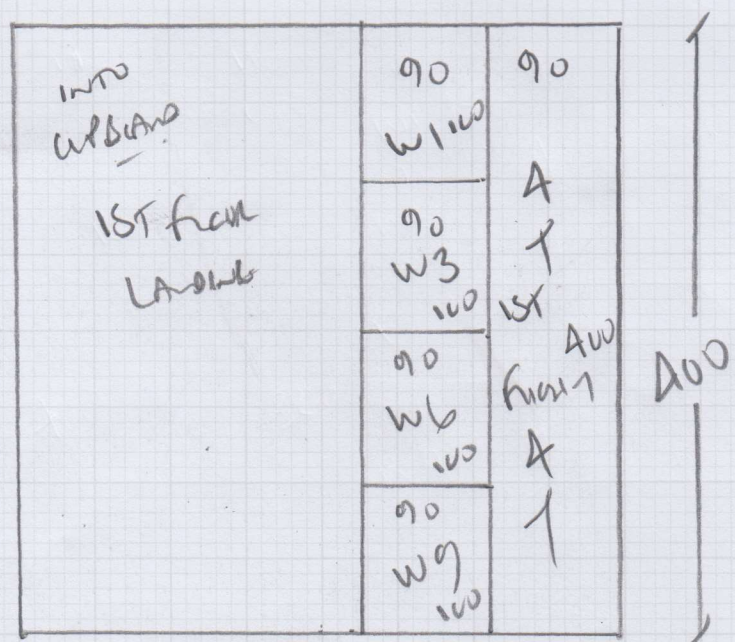 INTO
CUPBOARD
1ST FLOOR
LANDING
90
W1 100
90
W3
100
90
W6
100
90
W9
100
90
A
T
1ST
400
A
T
400